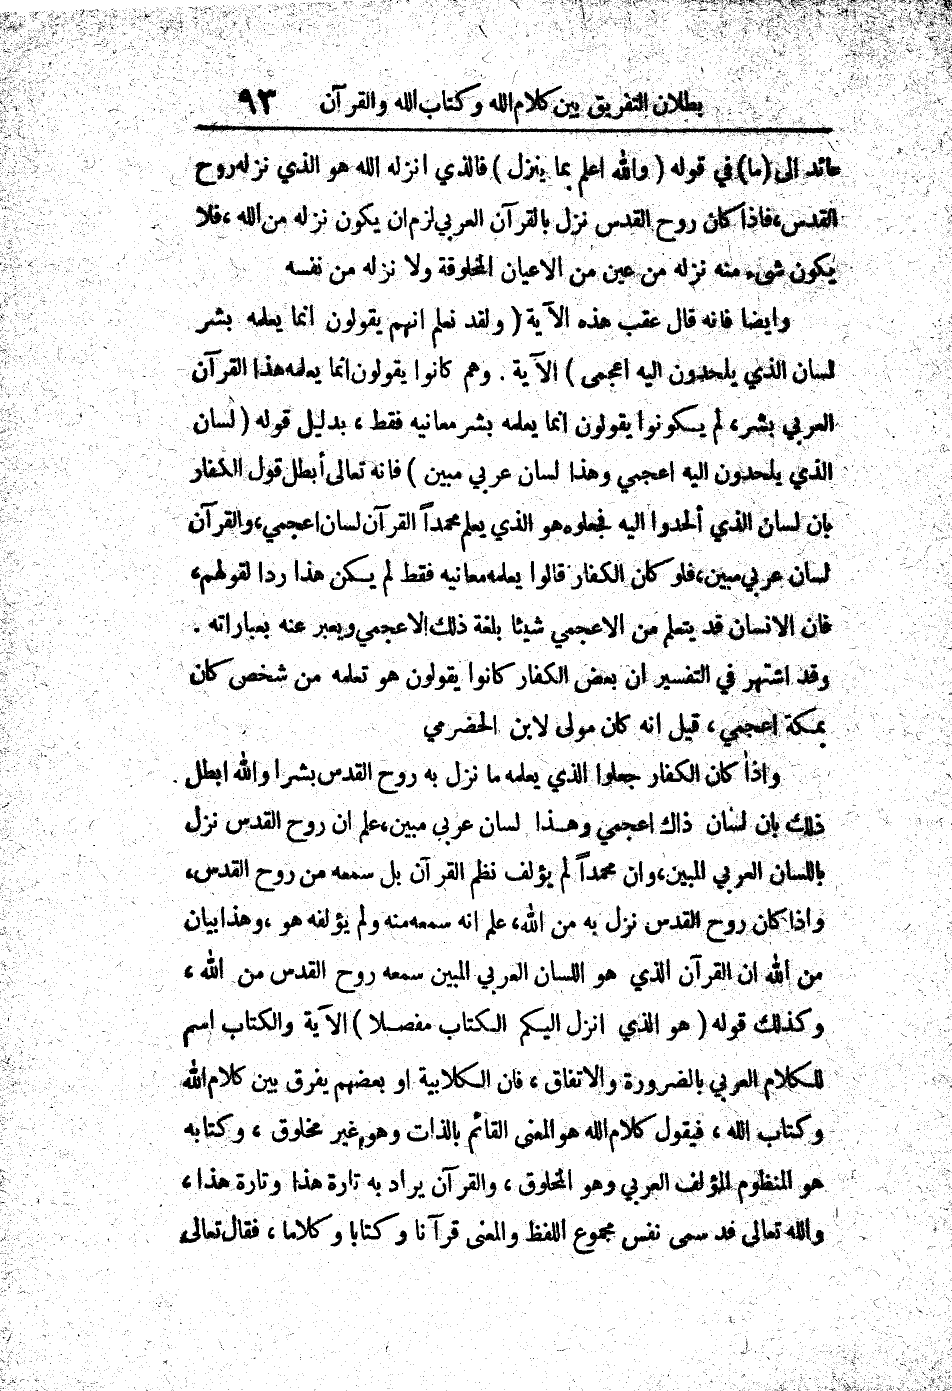 بطلان التفريق بين كلام الله وكتاب الله والقرآن ٩٣
عائد الى (ما) في قوله ( والله اعلم بما ينزل ) فالذي انزله الله هو الذي نزله روح
القدس، فاذا كان روح القدس نزل بالقرآن العربي لزم ان يكون نزله من الله ، فلا
يكون شيء منه نزله من عين من الاعيان المخلوقة ولا نزله من نفسه
وايضا فانه قال عقب هذه الآية ( ولقد نعلم انهم يقولون انما يعلمه بشر
لسان الذي يلحدون اليه اعجمى ) الآية . وهم كانوا يقولون انما يعلمه هذا القرآن
العربي بشر ، لم يكونوا يقولون انما يعلمه بشر معانيه فقط ، بدليل قوله ( لسان
الذي يلحدون اليه اعجمي وهذا لسان عربي مبين ) فانه تعالى أبطل قول الكفار
بان لسان الذي ألحدوا اليه فجعلوه هو الذي يعلم محمداً القرآن لسان اعجمي، والقرآن
لسان عربي مبين، فلو كان الكفار قالوا يعلمه معانيه فقط لم يكن هذا ردا لقولهم ،
فان الانسان قد يتعلم من الاعجمي شيئا بلغة ذلك الاعجمي ويعبر عنه بعباراته .
وقد اشتهر في التفسير ان بعض الكفار كانوا يقولون هو تعلمه من شخص كان
بمكة اعجمي ، قيل انه كان مولى لابن الحضرمي
واذا كان الكفار جعلوا الذي يعلمه ما نزل به روح القدس بشرا والله ابطل
ذلك بان لسان ذاك اعجمي وهذا لسان عربي مبين، علم ان روح القدس نزل
باللسان العربي المبين، وان محمداً لم يؤلف نظم القرآن بل سمعه من روح القدس،
واذا كان روح القدس نزل به من الله، علم انه سمعه منه ولم يؤلفه هو ، وهذا بيان
من الله ان القرآن الذي هو اللسان العربي المبين سمعه روح القدس من الله ،
وكذلك قوله ( هو الذي انزل اليكم الكتاب مفصلا ) الآية والكتاب اسم
للكلام العربي بالضرورة والاتفاق ، فان الكلابية او بعضهم يفرق بين كلام الله
وكتاب الله ، فيقول كلام الله هو المعنى القائم بالذات وهو غير مخلوق ، وكتابه
هو المنظوم المؤلف العربي وهو المخلوق ، والقرآن يراد به تارة هذا وتارة هذا ،
والله تعالى قد سمى نفس مجموع اللفظ والمعنى قرآنا وكتابا وكلاما ، فقال تعالى